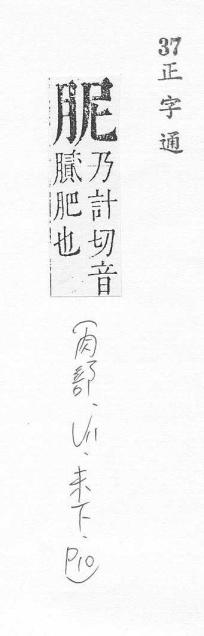 37正字通
胒乃計切音
膩肥也
(肉部、VII、未下、P10)